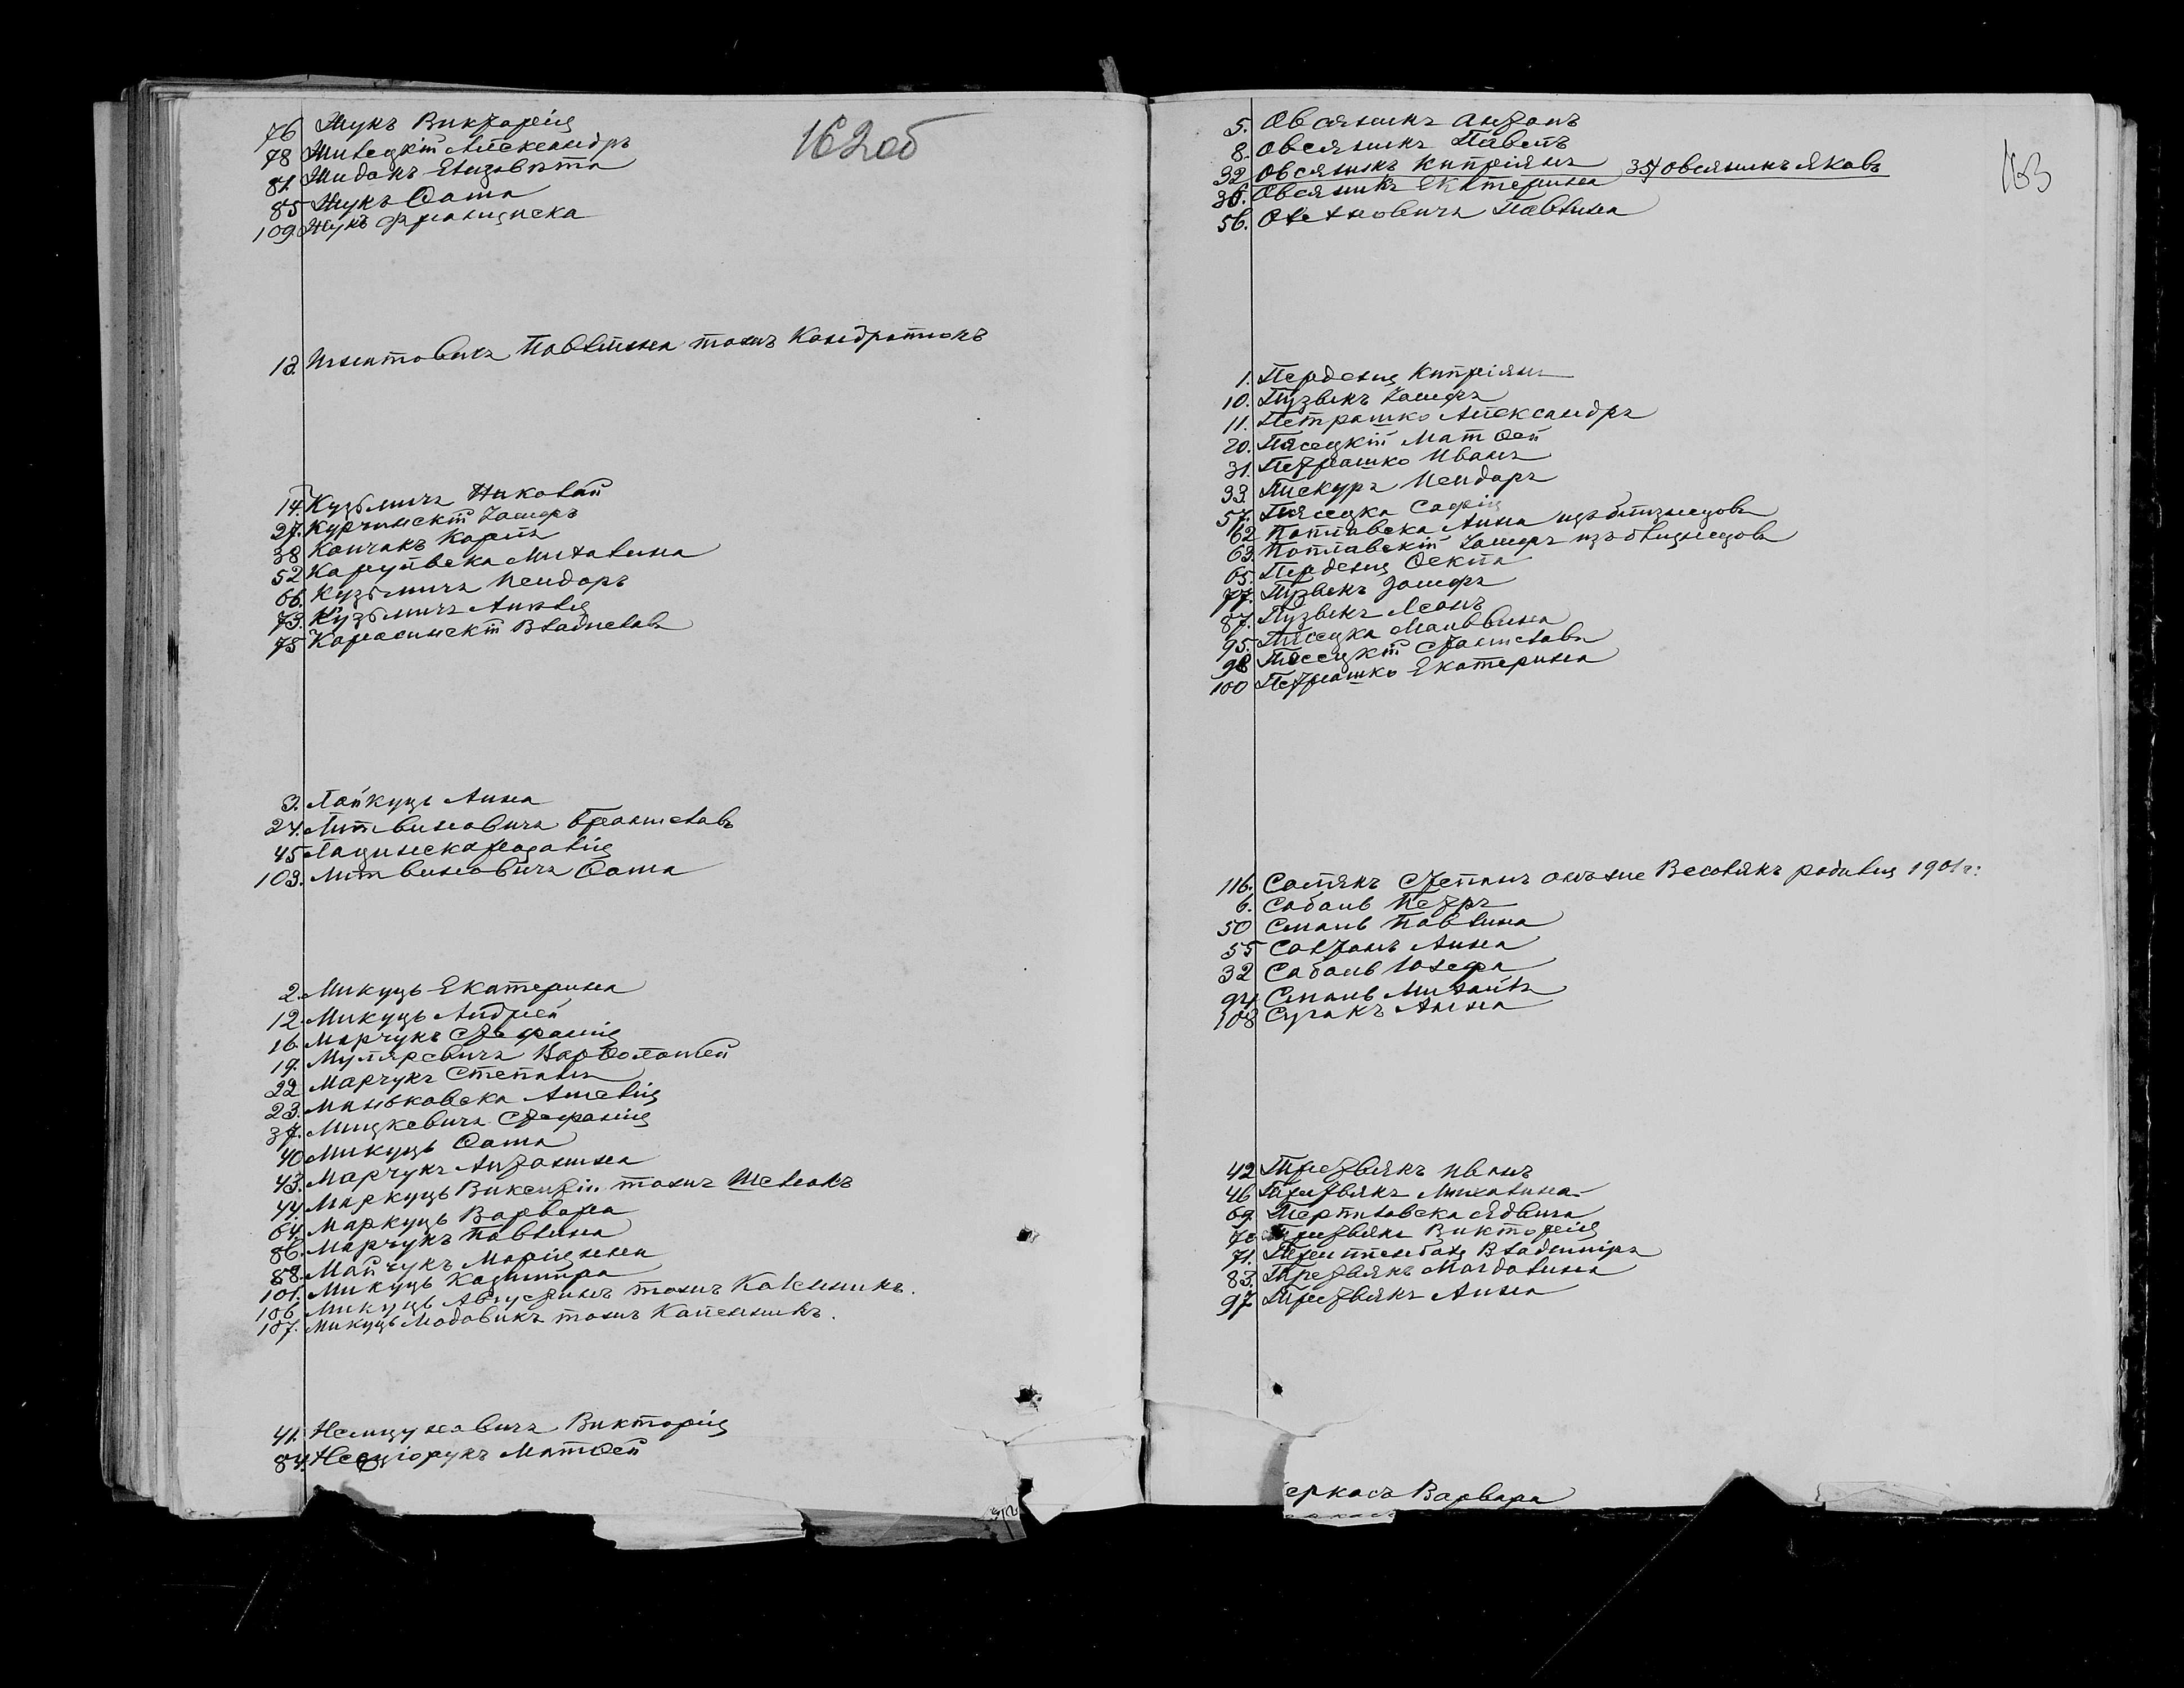 162об
76 Жукъ Викторія
78 Жилецкій Александръ
81. Жиданъ Елизавѣта
85 Жукъ Ѳома
109. Жукъ Франциска
13. Игнатовичъ Павлина тожъ Кондратюкъ
14. Кузьмичъ Николай
27. Курчинскій Іосифъ
38 Кончакъ Карпъ
52 Карпувска Михалина
66. Кузьмичъ Исидоръ
73. Кузьмичъ Анѣля
75 Карасинскій Владиславъ
3. Лайкуць Анна
24. Литвиновичъ Брониславъ
45 Лацинска Розалія
103. Литвиновичъ Ѳома
2. Микуць Екатерина
12. Микуць Андрей
16. Марчукъ Стефанія
19. Муляревичъ Варѳоломей
22 Марчукъ Степанъ
23. Маньковска Анелія
37. Мицкевичъ Стефанія
40 Микуць Ѳома
43. Марчукъ Антонина
44. Маркуць Викентій тожъ Шелюкъ
64. Маркуць Варвара
86. Марчукъ Павлина
88. Майчукъ Маріянна
101. Микуць Казимира
106 Микуць Августинъ тожъ Каленикъ.
107. Микуць Людовикъ тожъ Каленикъ.
41. Немцуновичъ Викторія
84. Несціорукъ Матѳей
163
5. Овсяникъ Антонъ
8. Овсяникъ Павелъ
32 Овсяникъ Кипріянъ 35/ Овсяникъ Яковъ
36. Овсяникъ Екатерина
56. Олехновичъ Павлина
1. Перденя Кипріянъ
10. Пузыкъ Іосифъ
11. Петрашко Александръ
20. Пясецкій Матѳей
31. Петрашко Иванъ
33. Пискуръ Исидоръ
57. Пясецка Софія
62 Поплавска Анна изъ близнецовъ
63. Поплавскій Іосифъ изъ близнецовъ
65. Перденя Ѳекла
77. Пузыкъ Іосифъ
87. Пузыкъ Леонъ
95. Пясецка Мальвина
98 Пясецкій Станиславъ
100 Петрашко Екатерина
116. Сотякъ Степанъ онъ же Весолякъ родился 1901 г.
6. Сабаль Петръ
50 Смаль Павлина
55 Солтанъ Анна
32 Сабаль Юзефа
94. Смаль Михаилъ
108 Сугакъ Анна
42 Третьякъ Иванъ
46 Третьякъ Михалина
69 Терпиловска Ядвига
70 Третьякъ Викторія
71. Владиміръ
83. Третьякъ Магдалина
97 Третьякъ Анна
еркасъ Варвара